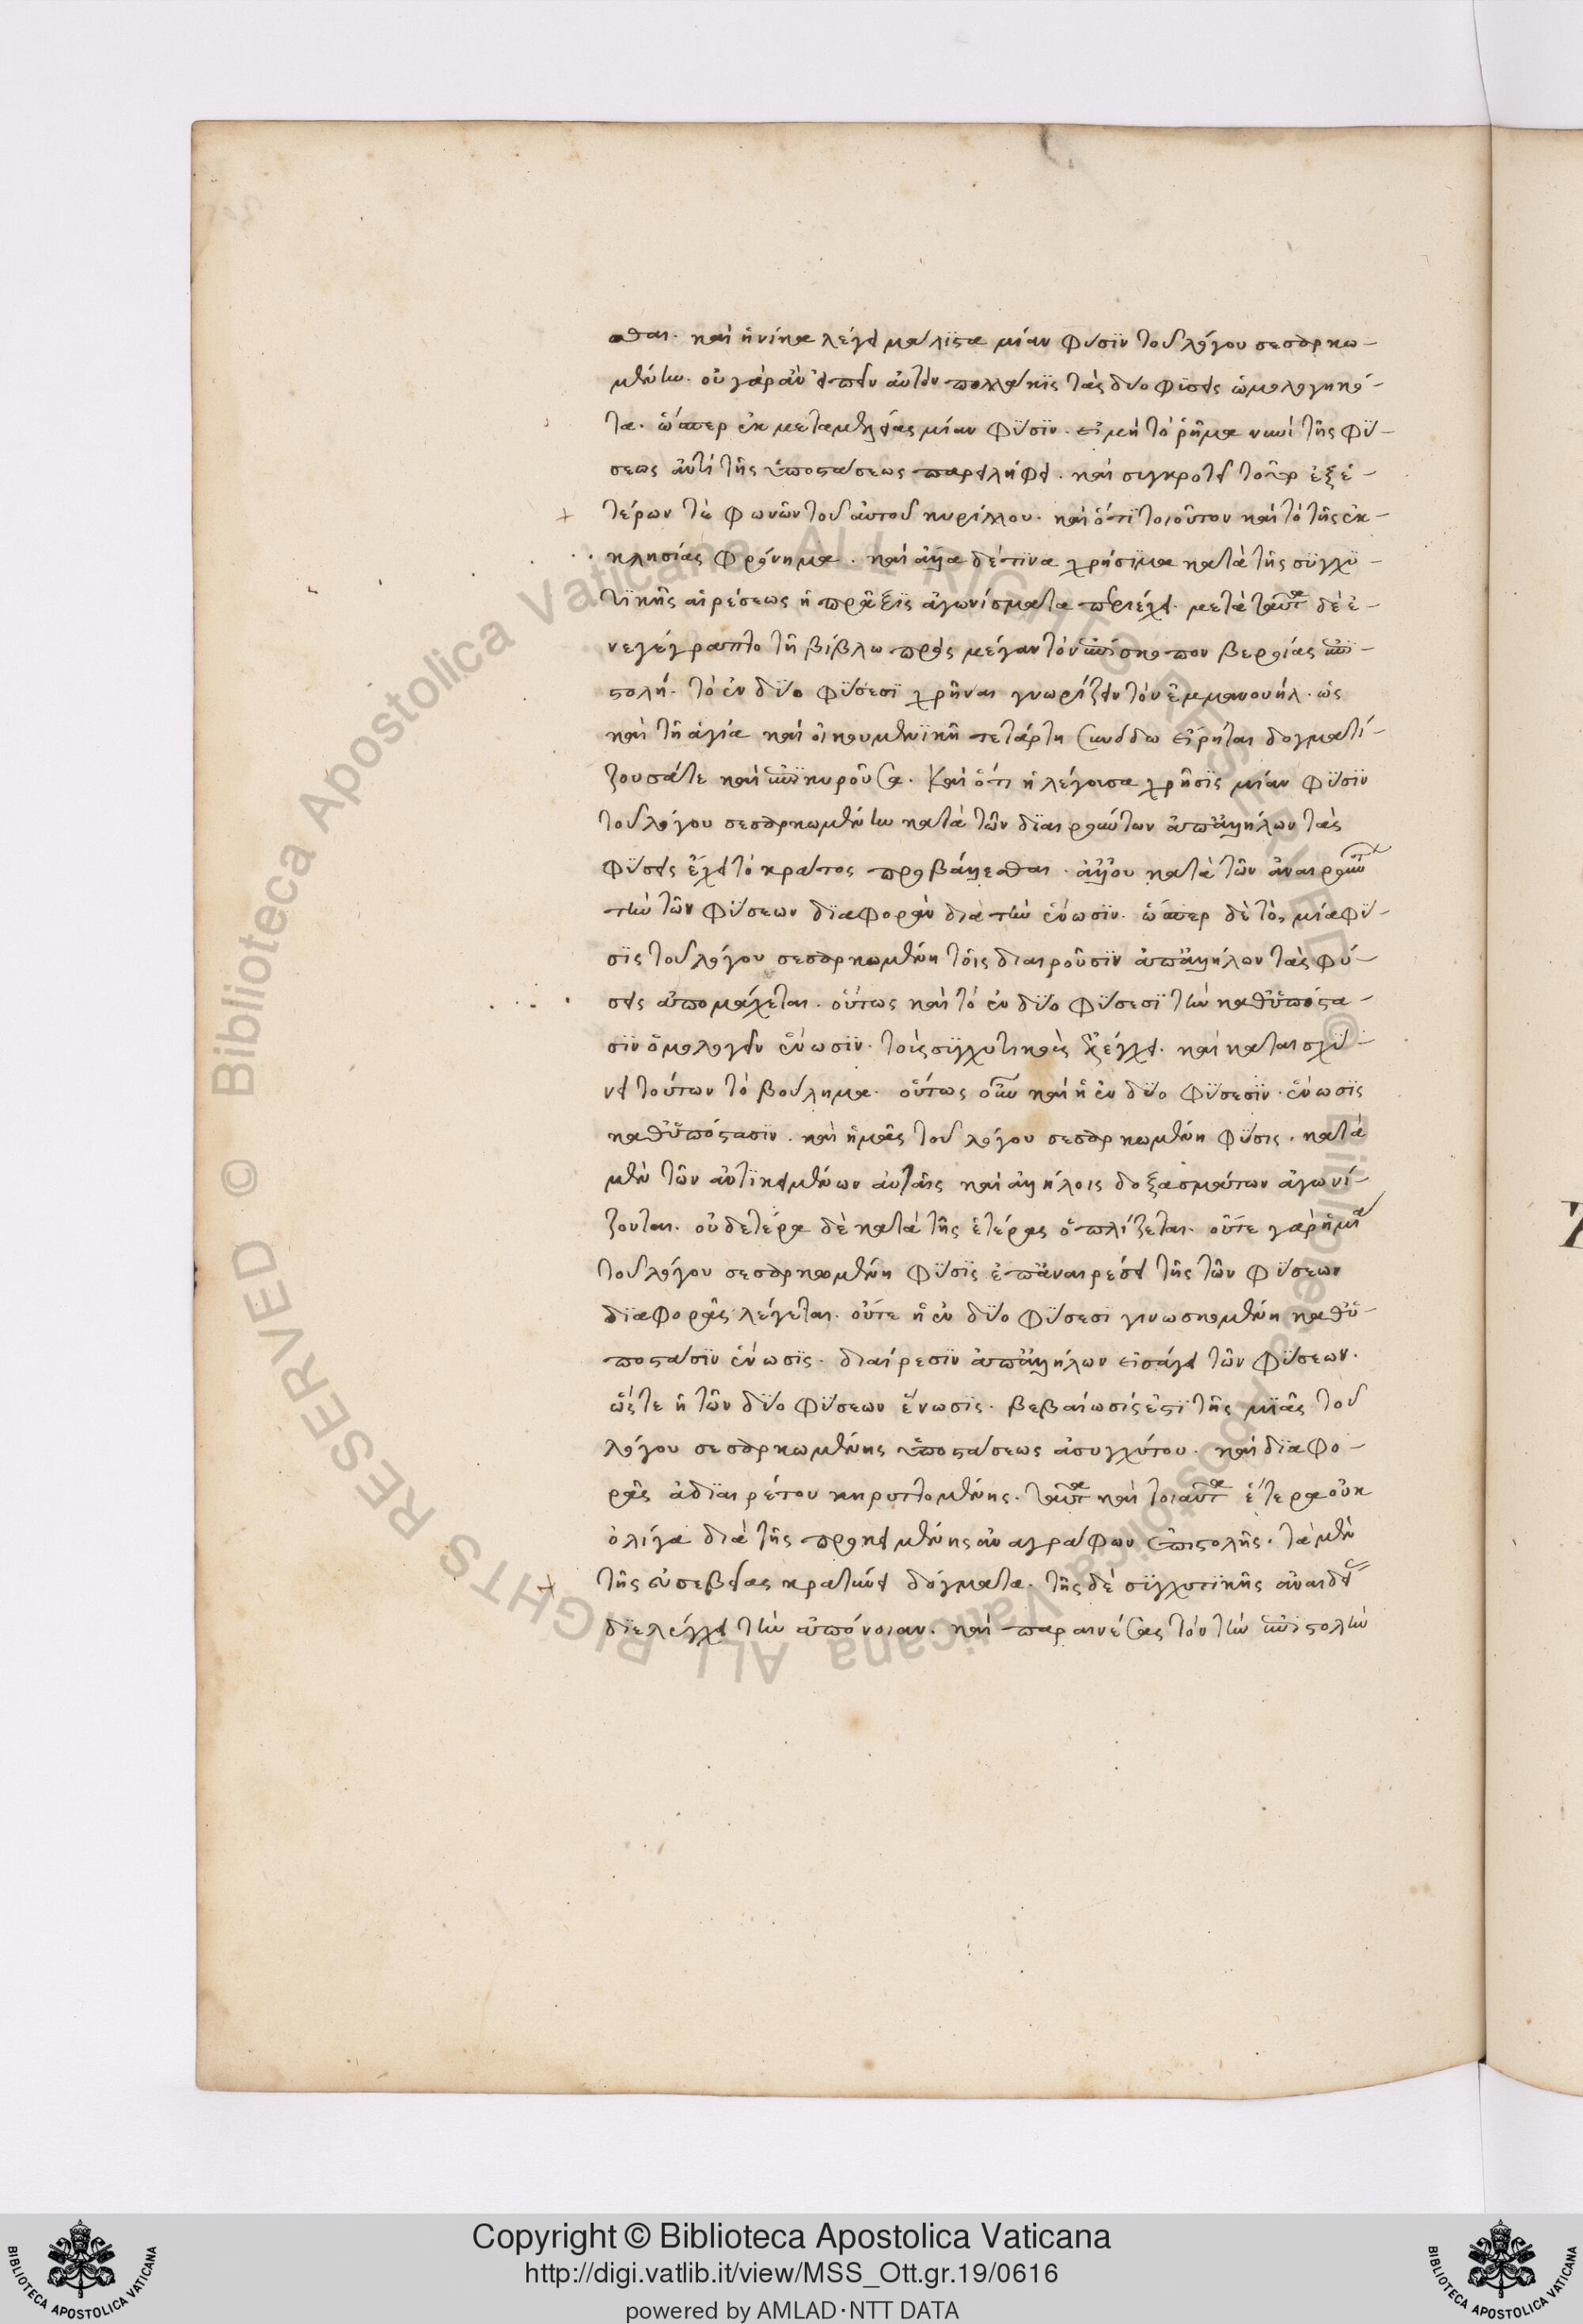 σθαι. καὶ ἡνίκα λέγει μάλιστα μίαν φύσιν τοῦ λόγου σεσαρκω-
μένην. οὐ γὰρ ἂν εἰπεῖν αὐτὸν πολλάκις τὰς δύο φύσεις ὡμολογηκό-
τα. ὥσπερ ἐκ μεταμελείας μίαν φύσιν. εἰ μὴ τὸ ῥῆμα νυνὶ τῆς φύ-
σεως ἀντὶ τῆς ὑποστάσεως παρείληφε. καὶ συγκροτεῖ τοῦτο ἐξ ἑ-
τέρων τε φωνῶν τοῦ αὐτοῦ κυρίλλου. καὶ ὅτι τοιοῦτον καὶ τὸ τῆς ἐκ-
κλησίας φρόνημα. καὶ ἄλλα δέ τινα χρήσιμα κατὰ τῆς συγχυ-
τικῆς αἱρέσεως ἡ πρᾶξις ἀγωνίσματα περιέχει. μετὰ ταῦτα δὲ ἐ-
νεγέγραπτο τῇ βίβλῳ πρὸς μέγαν τὸν ἐπίσκοπον βεροίας ἐπι-
στολή. τὸ ἐν δύο φύσεσι χρῆναι γνωρίζειν τὸν ἐμμανουήλ. ὡς
καὶ τῇ ἁγίᾳ καὶ οἰκουμενικῇ τετάρτῃ συνόδῳ εἴρηται δογματί-
ζουσά τε καὶ ἐπικυροῦσα. καὶ ὅτι ἡ λέγουσα χρῆσις μίαν φύσιν
τοῦ λόγου σεσαρκωμένην κατὰ τῶν διαιρούντων ἀπ' ἀλλήλων τὰς
φύσεις ἔχει τὸ κράτος προβάλλεσθαι. ἀλλ' οὐ κατὰ τῶν ἀναιρούντων
τὴν τῶν φύσεων διαφορὰν διὰ τὴν ἕνωσιν. ὥσπερ δὲ τὸ, μία φύ-
σις τοῦ λόγου σεσαρκωμένη τοῖς διαιροῦσιν ἀπ' ἀλλήλων τὰς φύ-
σεις ἀπομάχεται. οὕτως καὶ τὸ ἐν δύο φύσεσι τὴν καθ' ὑπόστα-
σιν ὁμολογεῖν ἕνωσιν. τοὺς συγχυτικοὺς ἐξελέγχει. καὶ καταισχύ-
νει τούτων τὸ βούλημα. οὕτως οὖν καὶ ἡ ἐν δύο φύσεσιν. ἕνωσις
καθ' ὑπόστασιν. καὶ ἡ μία τοῦ λόγου σεσαρκωμένη φύσις. κατὰ
μὲν τῶν ἀντικειμένων αὐταῖς καὶ ἀλλήλοις δοξασμάτων ἀγωνί-
ζονται. οὐδετέρα δὲ κατὰ τῆς ἑτέρας ὁπλίζεται. οὔτε γὰρ ἡ μία
τοῦ λόγου σεσαρκωμένη φύσις ἐπ' ἀναιρέσει τῆς τῶν φύσεων
διαφορᾶς λέγεται. οὔτε ἡ ἐν δύο φύσεσι γινωσκομένη καθ' ὑ-
πόστασιν ἕνωσις. διαίρεσιν ἀπ' ἀλλήλων εἰσάγει τῶν φύσεων.
ὥστε ἡ τῶν δύο φύσεων ἕνωσις. βεβαίωσίς ἐστι τῆς μιᾶς τοῦ
λόγου σεσαρκωμένης ὑποστάσεως ἀσυγχύτου. καὶ διαφο-
ρᾶς ἀδιαιρέτου κηρυττομένης. ταῦτα καὶ τοιαῦτα ἕτερα οὐκ
ὀλίγα διὰ τῆς προκειμένης ἀναγράφων ἐπιστολῆς. τὰ μὲν
τῆς εὐσεβείας κρατύνει δόγματα. τῆς δὲ συγχυτικῆς ἀναιδείας
διελέγχει τὴν ἀπόνοιαν. καὶ παραινέσας τὸν τὴν ἐπιστολὴν
Copyright © Biblioteca Apostolica Vaticana
http://digi.vatlib.it/view/MSS_Ott.gr.19/0616
powered by AMLAD·NTT DATA